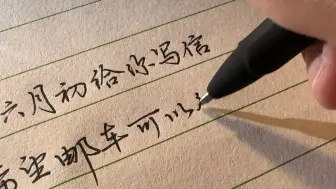 六月初给你写信
希望邮车可以